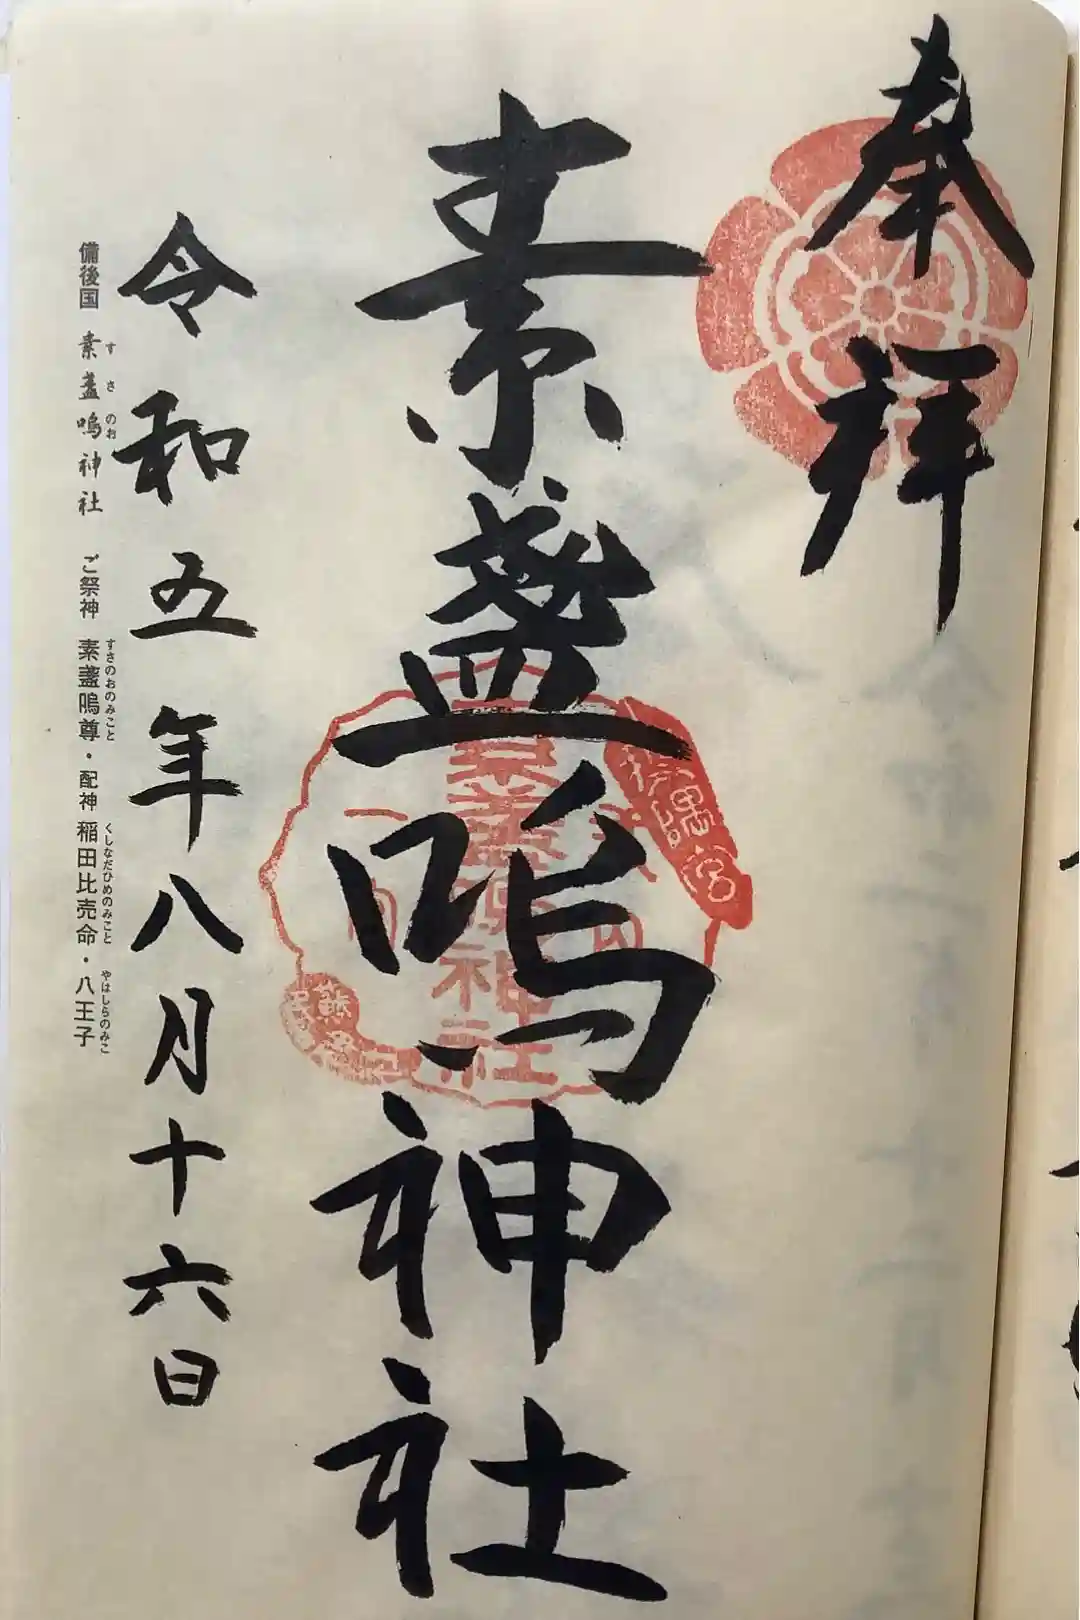 奉拝
素盞嗚神社
令和五年八月十六日
備後国 素盞嗚神社 ご祭神 素盞嗚尊・配神 稲田比売命・八王子
すさのお
すさのおのみこと
くしなだひめのみこと
やはしらのみこ